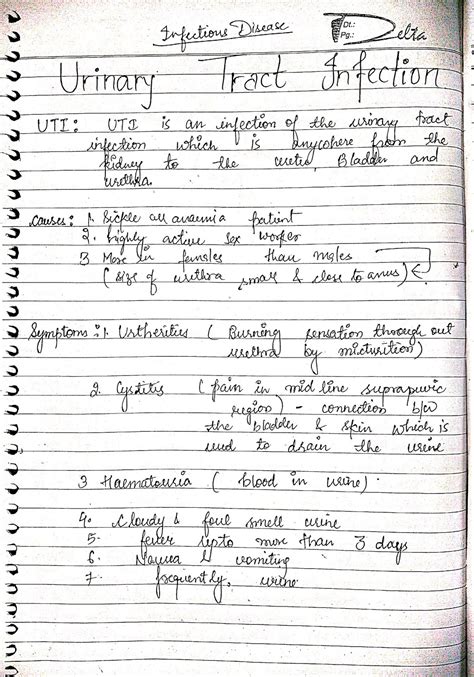 Infectious Disease
Dt.:
Pg.:
Delta
Urinary Tract Infection
UTI: UTI is an infection of the urinary tract
infection which is anywhere from the
kidney to the ureter, Bladder and
urethra.
Causes: 1. Sickle cell anaemia patient
2. highly active sex worker
3 More in females than males
(size of urethra small & close to anus)
Symptoms: 1. Urtherities (Burning sensation through out
urethra by micturition)
2. Cystitis (pain in mid line suprapuvic
region) - connection b/w
the bladder & skin which is
used to drain the urine
3 Haematousia (blood in urine).
4. Cloudy & foul smell urine
5. fever upto more than 3 days
6. Nausea & vomiting
7. frequently, urine